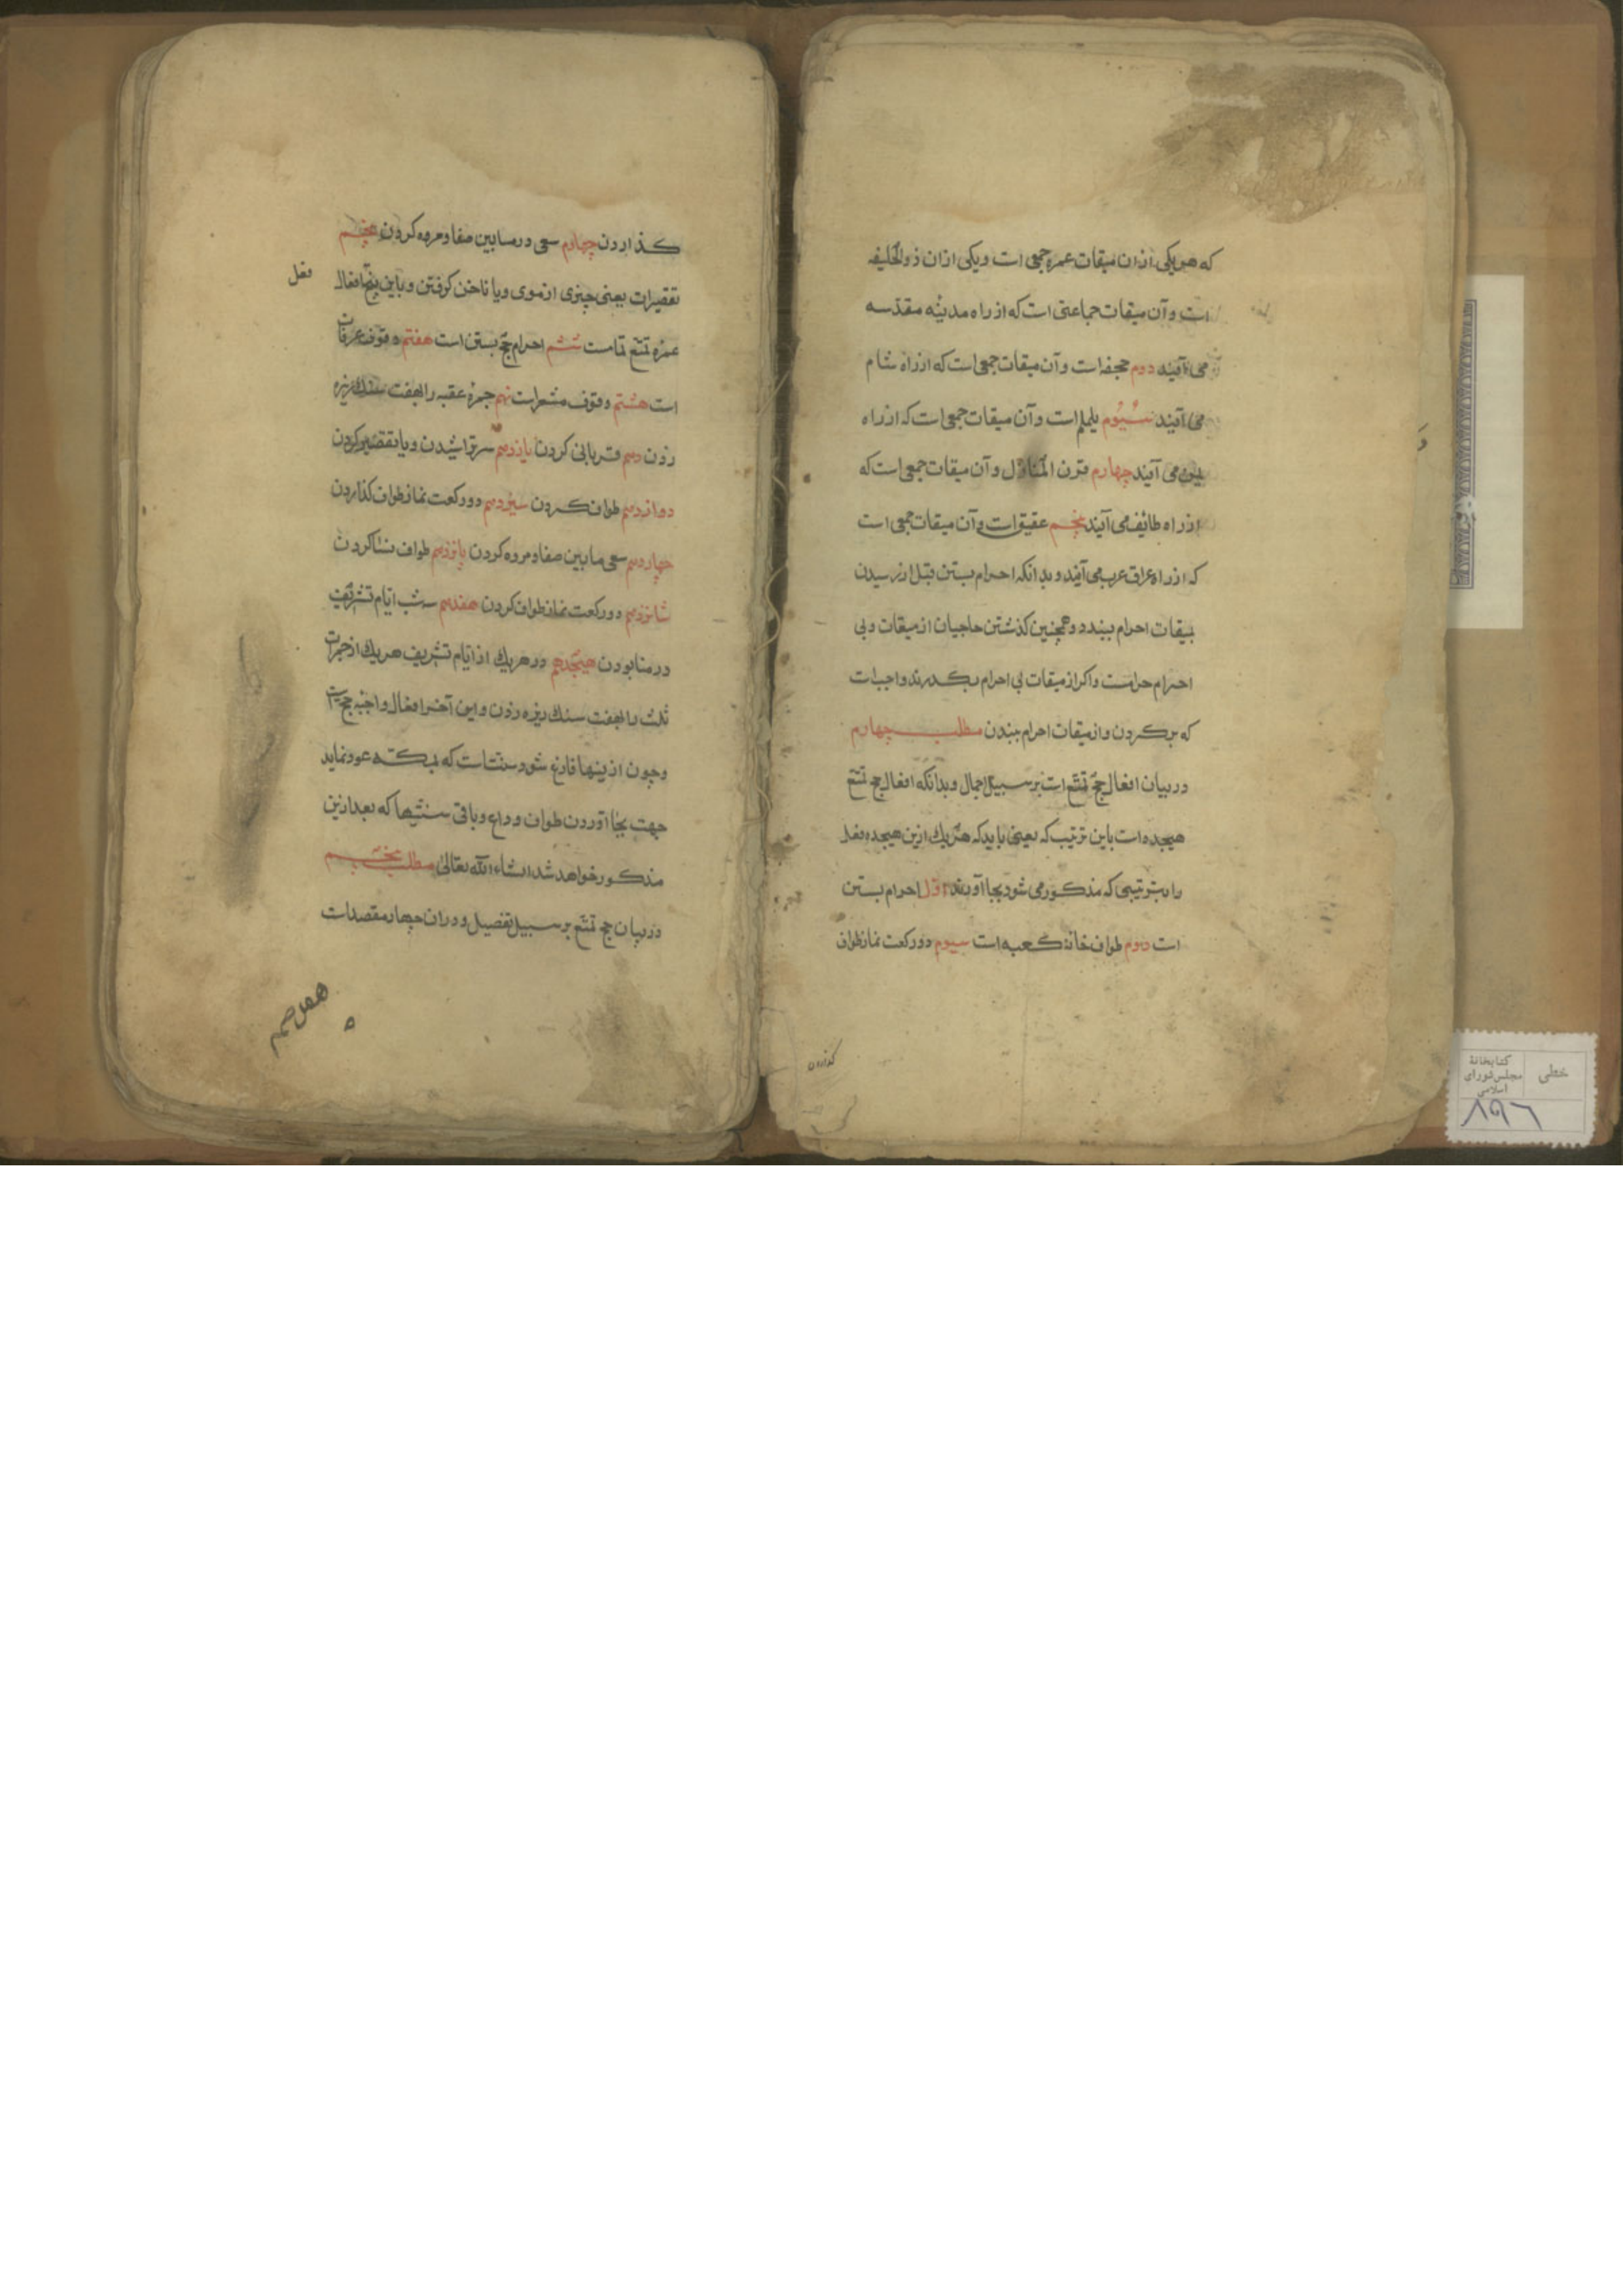 که هر یکی ازان میقات عمره جمعی است و یکی ازان ذوالحلیفه
است و آن میقات جماعتی است که از راه مدینهٔ مقدّسه
می آیند دوم جحفه است و آن میقات جمعی است که از راه شام
می آیند سیّوم یلملم است و آن میقات جمعی است که از راه
یمن می آیند چهارم قرن المنازل و آن میقات جمعی است که
از راه طائف می آیند پنجم عقیق است و آن میقات جمعی است
که از راه عراق عرب می آیند و بدانکه احرام بستن قبل از رسیدن
بمیقات احرام ببندد و همچنین کذشتن حاجیان از میقات و بی
احرام حرامست و اکر از میقات بی احرام بکدرند واجبات
که برکردن و از میقات احرام ببندن مطلب چهارم
در بیان افعال حجّ تمتّع است بر سبیل اجمال و بدانکه افعال حج تمتّع
هیجده است باین ترتیب که یعنی باید که هر یك ازین هیجده فعل
را بترتیبی که مذکور می شود بجا آورند اوّل احرام بستن
است دوم طواف خانهٔ کعبه است سیوم دو رکعت نماز طواف
کذاردن
کذاردن چهارم سعی در ما بین صفا و مروه کردن پنجم
تقصیرات یعنی چیزی از موی و یا ناخن کرفتن و باین پنج افعال
فعل
عمرهٔ تمتّع تمامست ششم احرام حجّ بستن است هفتم وقوف عرفات
است هشتم وقوف مشعرات نهم جمرهٔ عقبه را بهفت سنك ریزه
زدن دهم قربانی کردن یازدهم سر تراشیدن و یا تقصیر کردن
دوازدهم طواف کردن سیزدهم دو رکعت نماز طواف کذاردن
چهاردهم سعی ما بین صفا و مروه کردن پانزدهم طواف نسا کردن
شانزدهم دو رکعت نماز طواف کردن هفدهم سه شب ایّام تشریق
در منا بودن هیجدهم در هر یك از ایّام تشریف هر یك از جمرات
ثلث را بهفت سنك ریزه زدن و این آخر افعال واجبهٔ حج است
و چون ازینها فارغ شود سنتّست که بمکّه عود نماید
جهت بجا آوردن طواف وداع و باقی سنّتیها که بعد ازین
مذکور خواهد شد انشاء الله تعالی مطلب پنجم
در بیان حج تمتّع بر سبیل تفصیل و دران چهار مقصدات
خطی
کتابخانهٔ
مجلس شورای
اسلامی
۸۹۶